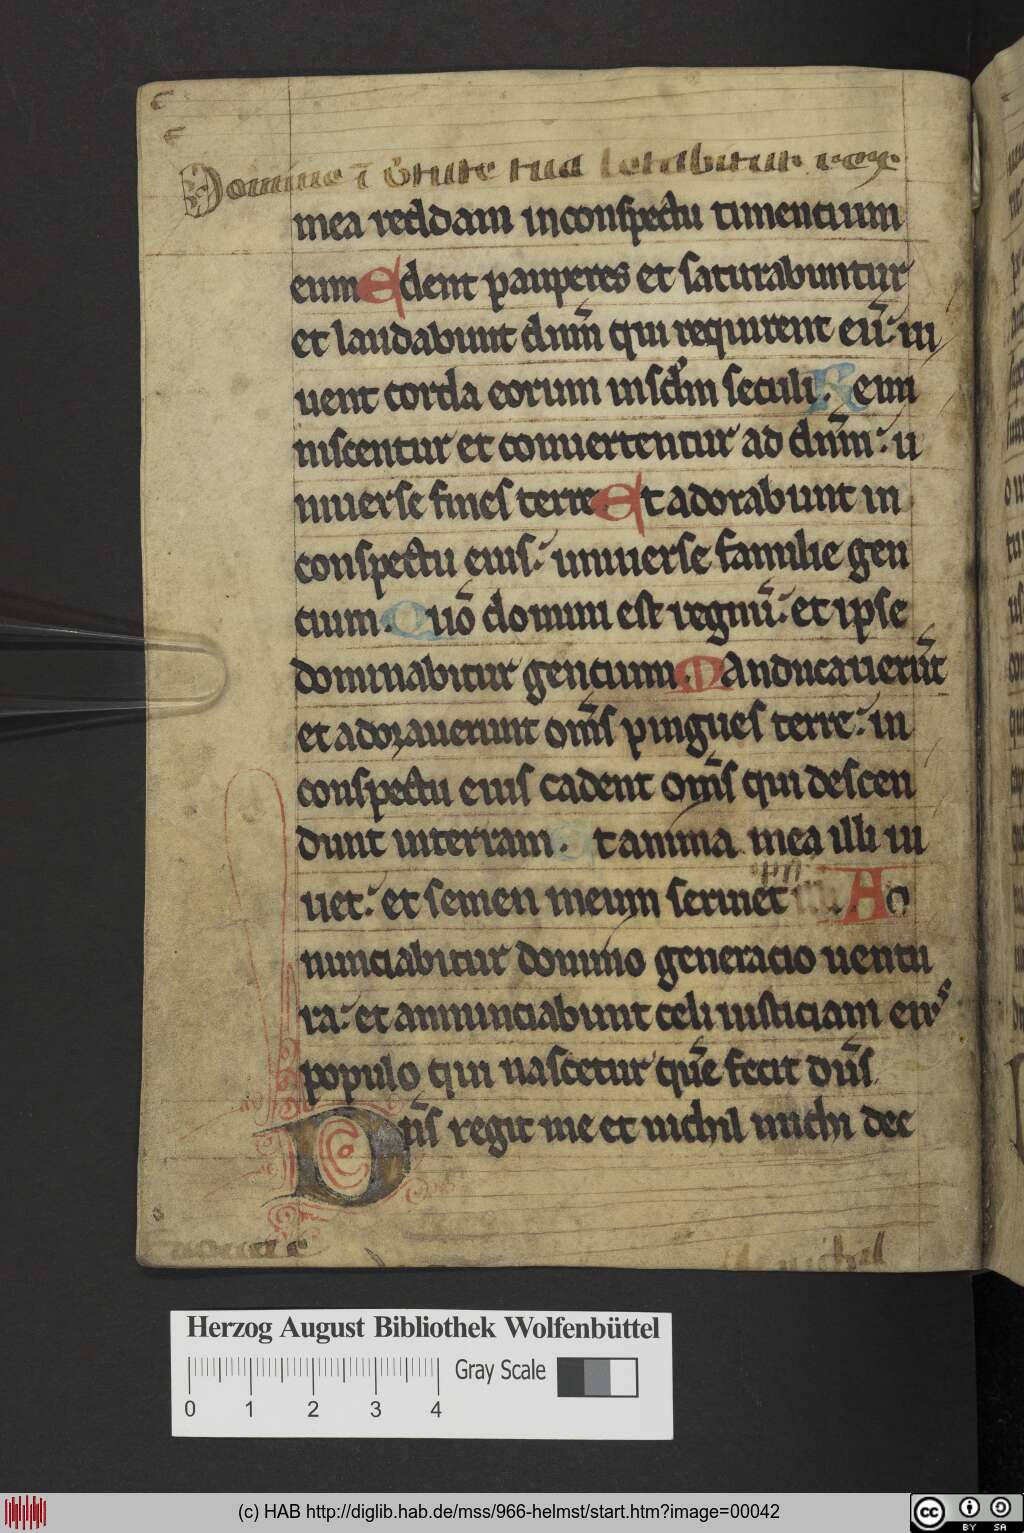 Domine ī ũtute tua letabitur rex
mea reddam inconspectu timentium
eum Edent pauperes et saturabuntur
et laudabunt dnm̄ qui requirent eū: ui
uent corda eorum inscl̄m seculi. Remi
niscentur et conuertentur ad dnm̄: u
niuerse fines terre Et adorabunt in
conspectu eius: uniuerse familie gen
tium. Quō domini est regnū: et ipse
dominabitur gentium. Manducauerūt
et adorauerunt om̄s pingues terre: in
conspectu eius cadent om̄s qui descen
dunt interram. Et anima mea illi ui
uet: et semen meum seruiet ipi. An
nunciabitur domino generacio uentu
ra: et annunciabunt celi iusticiam eius
populo qui nascetur que fecit dn̄s
Dn̄s regit me et nichil michi dee
Herzog August Bibliothek Wolfenbüttel
Gray Scale
0 1 2 3 4
(c) HAB http://diglib.hab.de/mss/966-helmst/start.htm?image=00042
cc BY SA